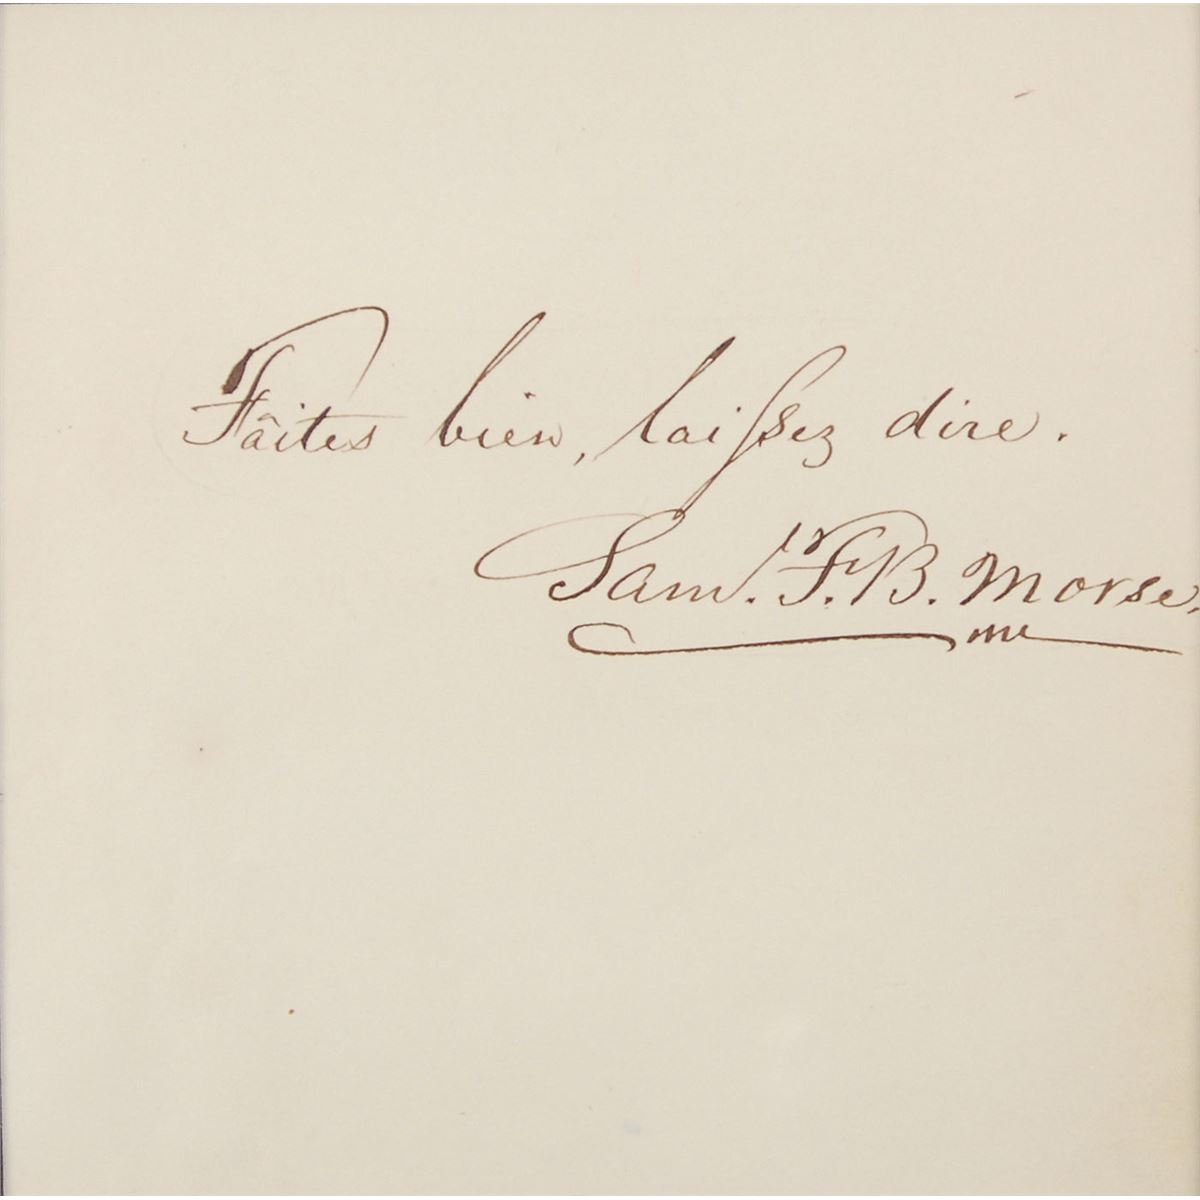 Fâites bien, laiſsez dire.
Sam.ˡ F. B. Morse.